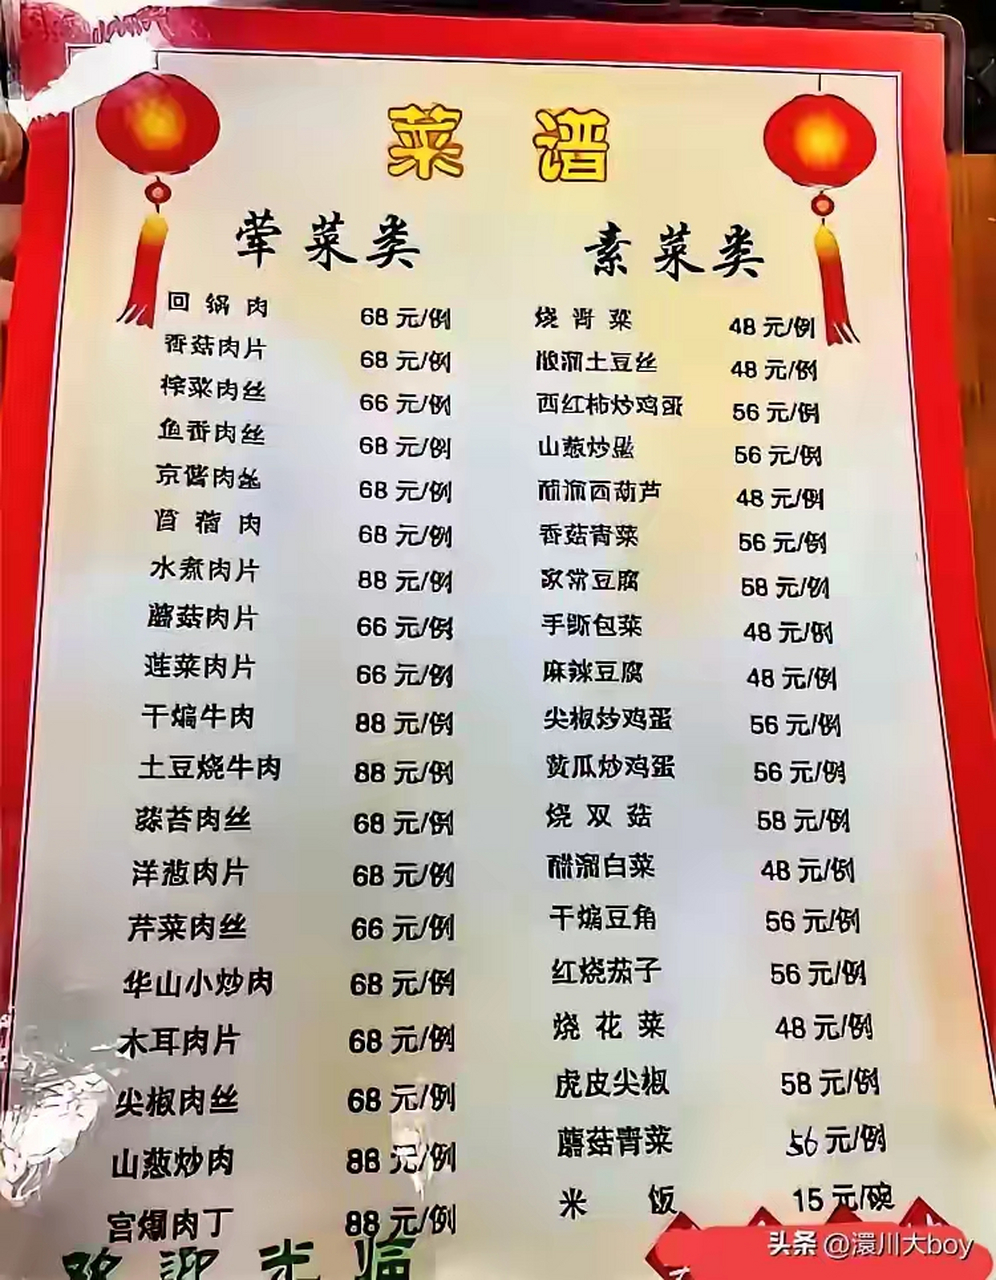 菜 谱
荤菜类
回锅肉 68元/例
香菇肉片 68元/例
榨菜肉丝 66元/例
鱼香肉丝 68元/例
京酱肉丝 68元/例
肉 68元/例
水煮肉片 88元/例
蘑菇肉片 66元/例
莲菜肉片 66元/例
干煸牛肉 88元/例
土豆烧牛肉 88元/例
蒜苔肉丝 68元/例
洋葱肉片 68元/例
芹菜肉丝 66元/例
华山小炒肉 68元/例
木耳肉片 68元/例
尖椒肉丝 68元/例
山葱炒肉 88元/例
宫爆肉丁 88元/例
素菜类
烧青菜 48元/例
酸溜土豆丝 48元/例
西红柿炒鸡蛋 56元/例
山葱炒蛋 56元/例
醋溜西葫芦 48元/例
香菇青菜 56元/例
家常豆腐 58元/例
手撕包菜 48元/例
麻辣豆腐 48元/例
尖椒炒鸡蛋 56元/例
黄瓜炒鸡蛋 56元/例
烧双菇 58元/例
醋溜白菜 48元/例
干煸豆角 56元/例
红烧茄子 56元/例
烧花菜 48元/例
虎皮尖椒 58元/例
蘑菇青菜 56元/例
米饭 15元/碗
欢迎光临
头条 @澴川大boy